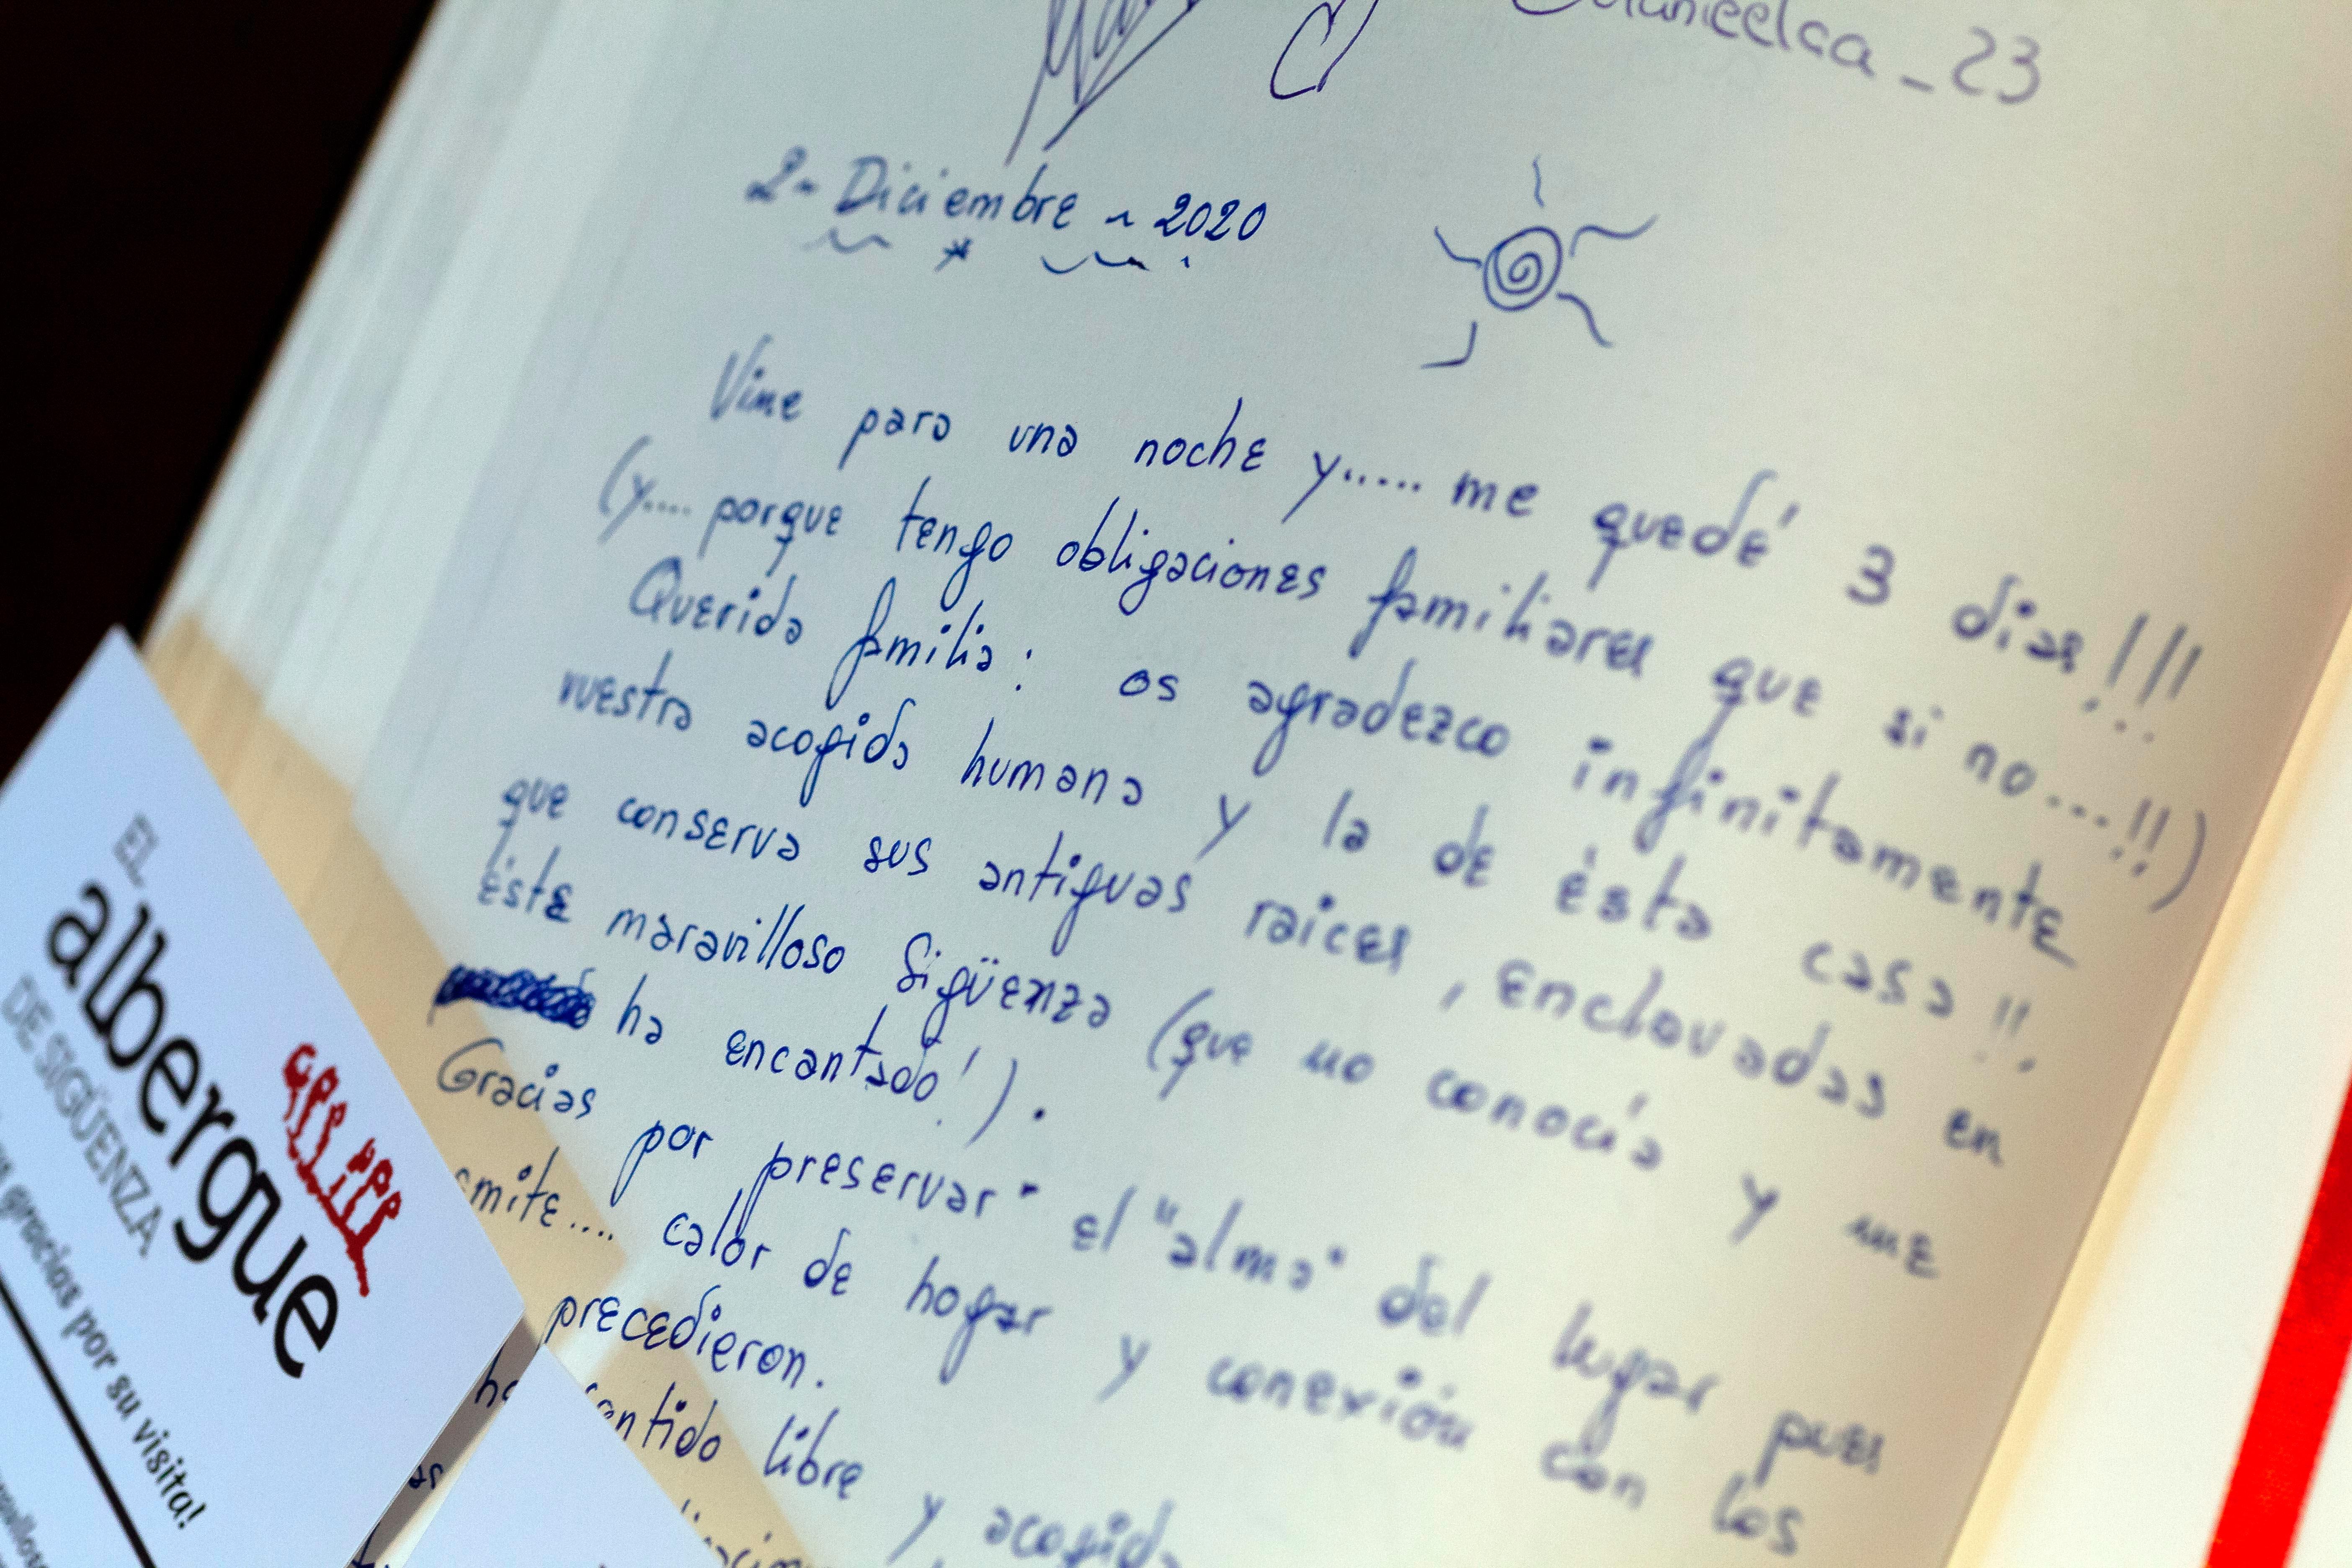 _23
2 - Diciembre ~ 2020
Vine para una noche y..... me quedé 3 dias!!!
(y.... porque tengo obligaciones familiares que si no...!!)
Querida familia: os agradezco infinitamente
vuestra acogida humana y la de ésta casa!!
que conserva sus antiguas raices, enclavadas en
éste maravilloso Sigüenza (que no conocía y me
ha encantado!).
Gracias por preservar el "alma" del lugar pues
calor de hogar y conexión con los
precedieron.
libre y acogida
EL
albergue
DE SIGÜENZA
gracias por su visita!